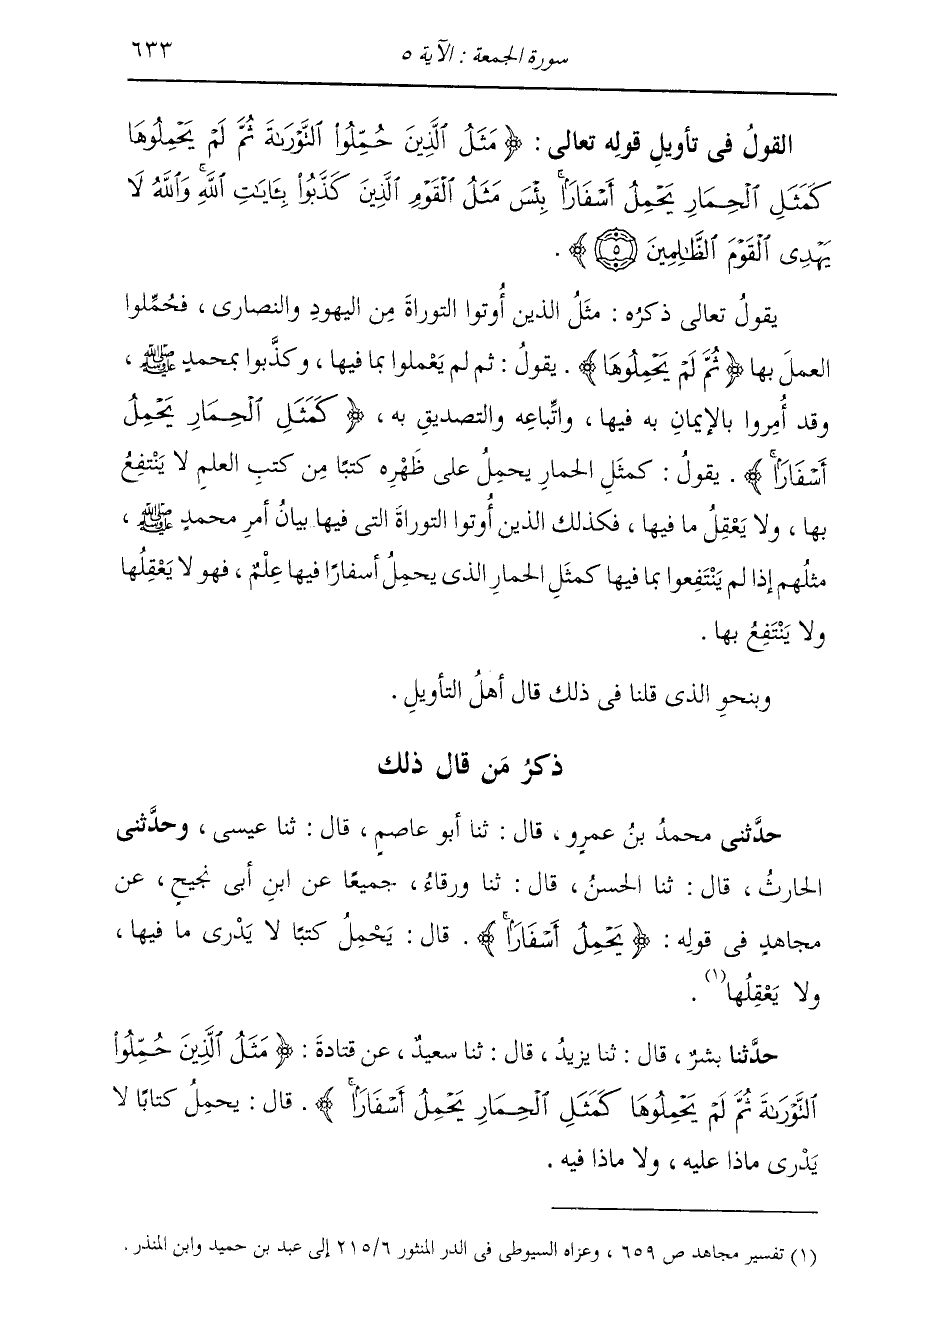 سورة الجمعة : الآية ٥
٦٣٣
القولُ فى تأويلِ قولِه تعالى : ﴿ مَثَلُ ٱلَّذِينَ حُمِّلُوا۟ ٱلتَّوْرَىٰةَ ثُمَّ لَمْ يَحْمِلُوهَا
كَمَثَلِ ٱلْحِمَارِ يَحْمِلُ أَسْفَارًۢاۚ بِئْسَ مَثَلُ ٱلْقَوْمِ ٱلَّذِينَ كَذَّبُوا۟ بِـَٔايَـٰتِ ٱللَّهِۚ وَٱللَّهُ لَا
يَهْدِى ٱلْقَوْمَ ٱلظَّـٰلِمِينَ ٥ ﴾ .
يقولُ تعالى ذكرُه : مثَلُ الذين أُوتوا التوراةَ مِن اليهودِ والنصارى ، فحُمِّلوا
العملَ بها ﴿ ثُمَّ لَمْ يَحْمِلُوهَا ﴾ . يقولُ : ثم لم يَعْملوا بما فيها ، وكذَّبوا بمحمدٍ ﷺ ،
وقد أُمِروا بالإيمانِ به فيها ، واتِّباعِه والتصديقِ به ، ﴿ كَمَثَلِ ٱلْحِمَارِ يَحْمِلُ
أَسْفَارًۢاۚ ﴾ . يقولُ : كمثَلِ الحمارِ يحمِلُ على ظَهْرِه كتبًا مِن كتبِ العلمِ لا يَنْتفِعُ
بها ، ولا يَعْقِلُ ما فيها ، فكذلك الذين أُوتوا التوراةَ التى فيها بيانُ أمرِ محمدٍ ﷺ ،
مثلُهم إذا لم يَنْتَفِعوا بما فيها كمثَلِ الحمارِ الذى يحمِلُ أسفارًا فيها عِلْمٌ ، فهو لا يَعْقِلُها
ولا يَنْتَفِعُ بها .
وبنحوِ الذى قلنا فى ذلك قال أهلُ التأويلِ .
ذكرُ مَن قال ذلك
حدَّثنى محمدُ بنُ عمرٍو ، قال : ثنا أبو عاصمٍ ، قال : ثنا عيسى ، وحدَّثنى
الحارثُ ، قال : ثنا الحسنُ ، قال : ثنا ورقاءُ ، جميعًا عن ابنِ أبى نجيحٍ ، عن
مجاهدٍ فى قولِه : ﴿ يَحْمِلُ أَسْفَارًۢاۚ ﴾ . قال : يَحْمِلُ كتبًا لا يَدْرى ما فيها ،
ولا يَعْقِلُها(١) .
حدَّثنا بشرٌ ، قال : ثنا يزيدُ ، قال : ثنا سعيدٌ ، عن قتادةَ : ﴿ مَثَلُ ٱلَّذِينَ حُمِّلُوا۟
ٱلتَّوْرَىٰةَ ثُمَّ لَمْ يَحْمِلُوهَا كَمَثَلِ ٱلْحِمَارِ يَحْمِلُ أَسْفَارًۢاۚ ﴾ . قال : يحمِلُ كتابًا لا
يَدْرى ماذا عليه ، ولا ماذا فيه .
(١) تفسير مجاهد ص ٦٥٩ ، وعزاه السيوطى فى الدر المنثور ٢١٥/٦ إلى عبد بن حميد وابن المنذر .